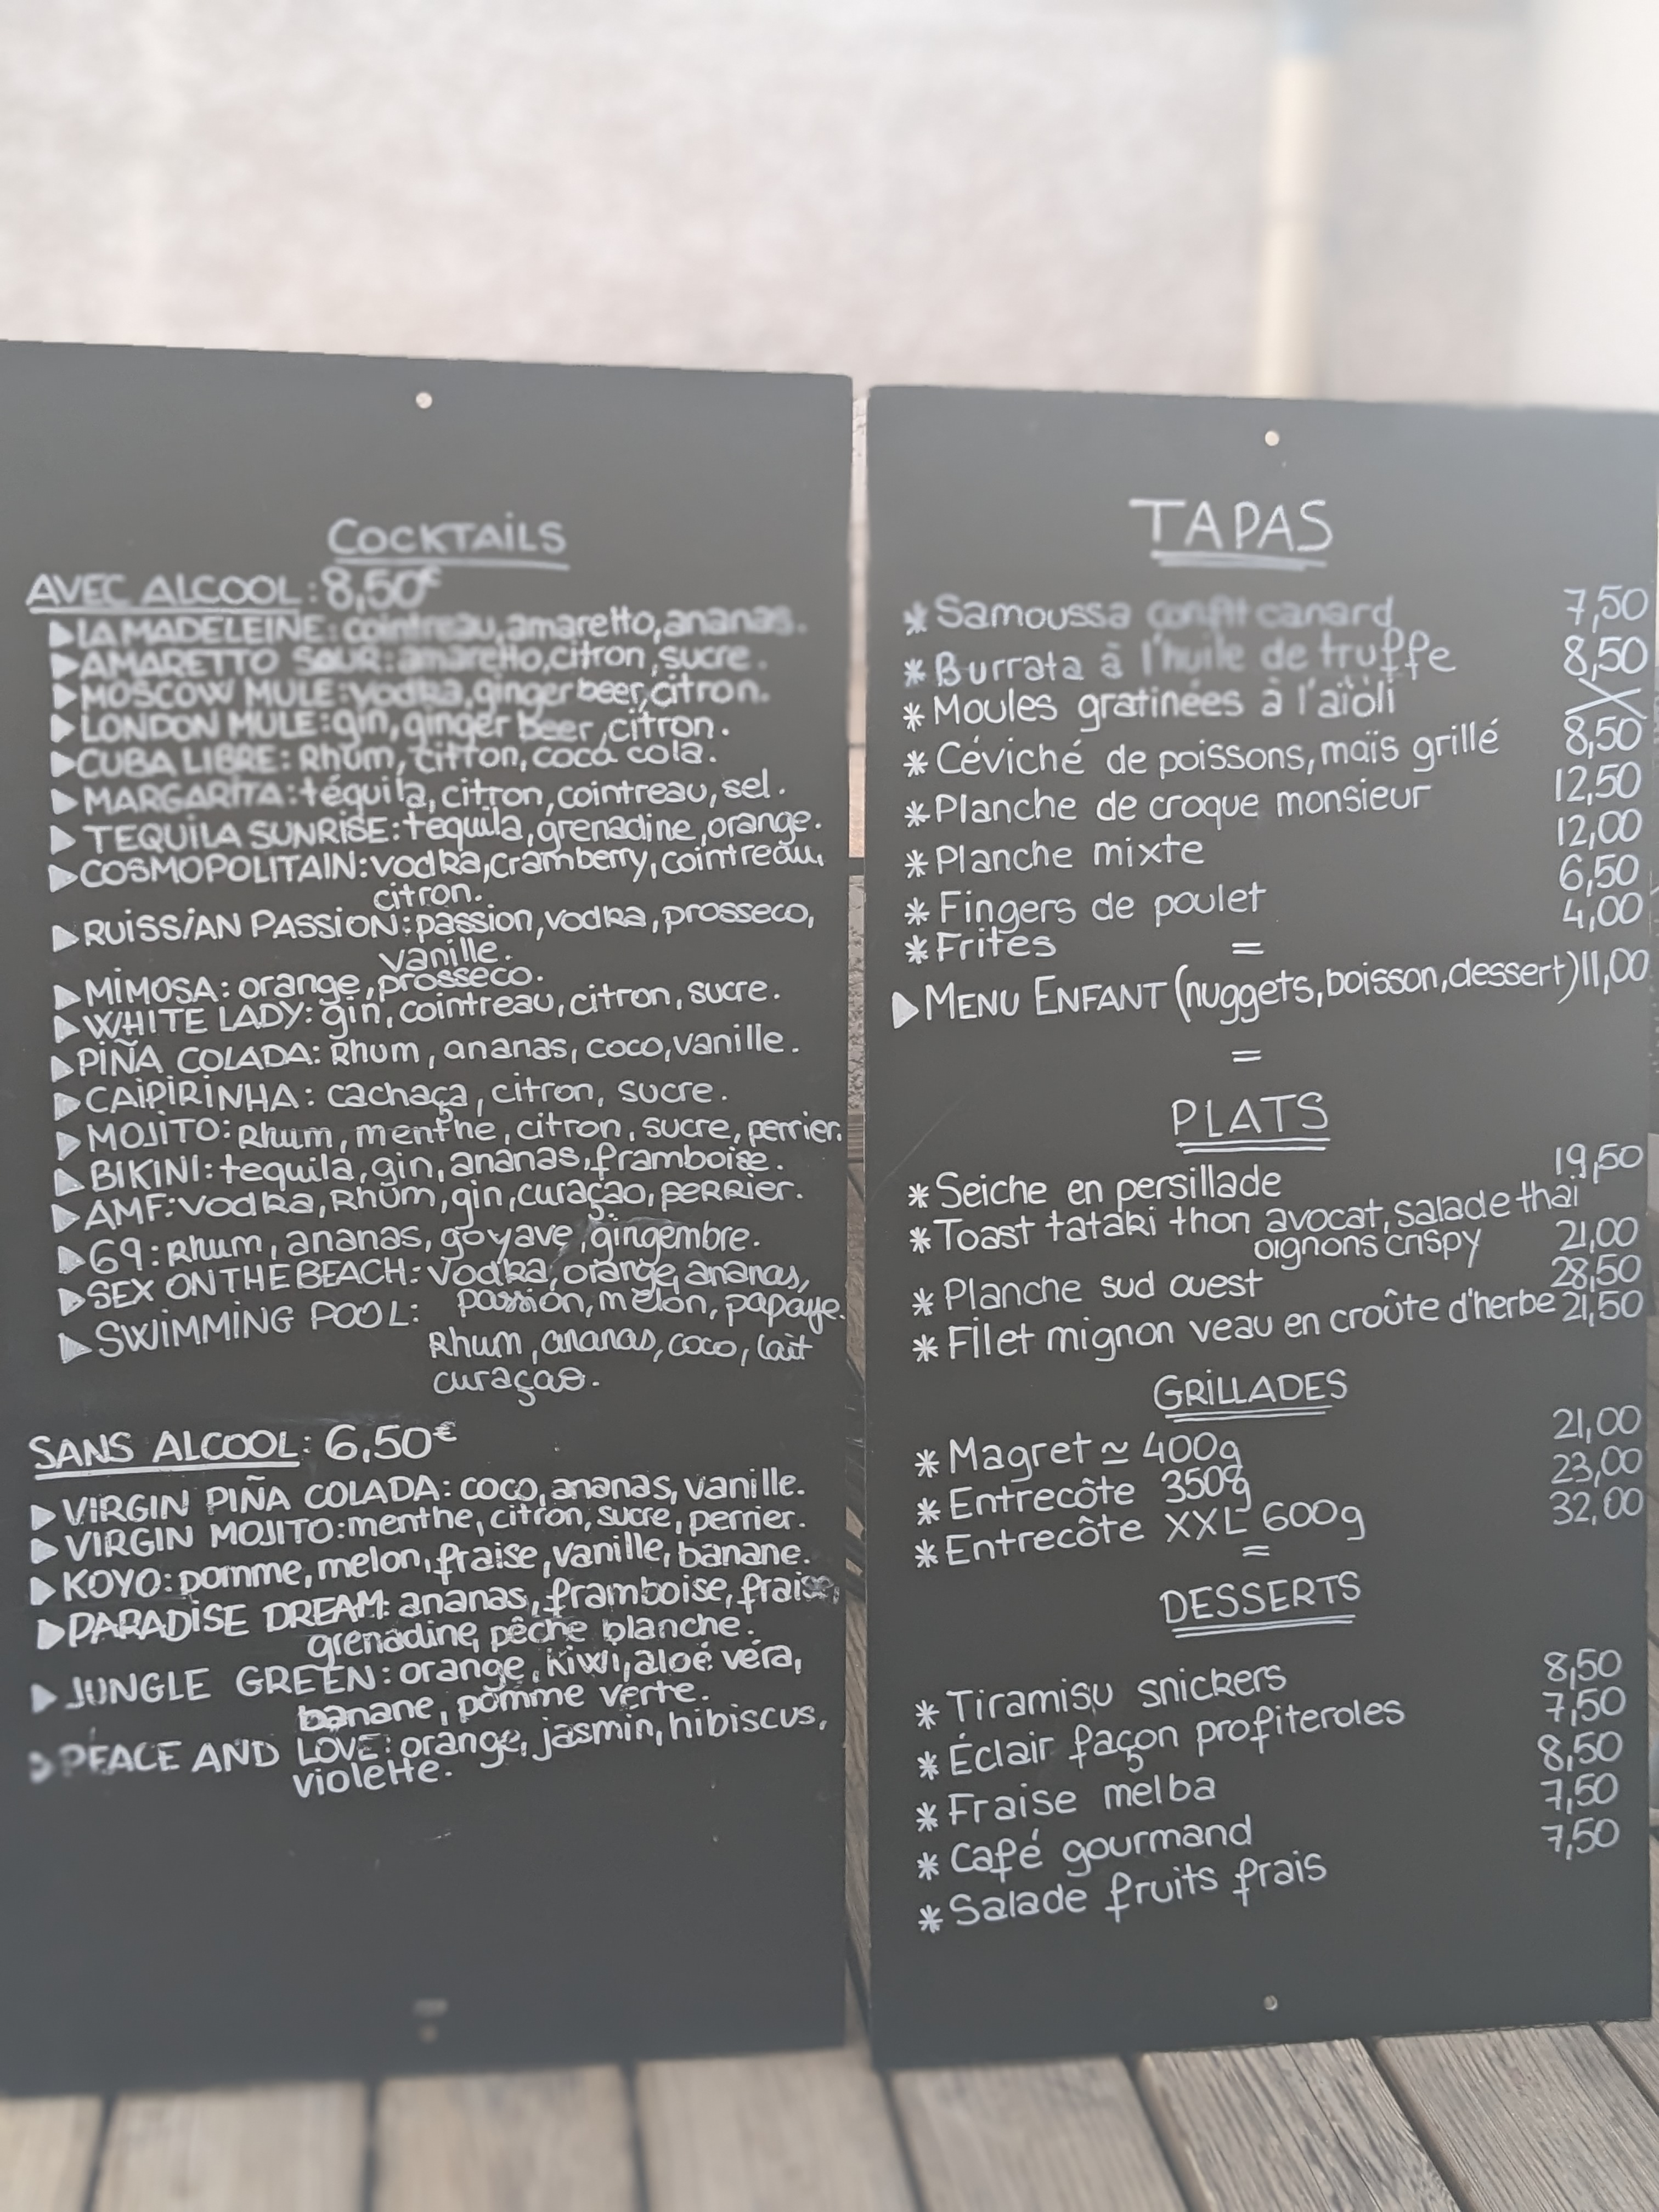 COCKTAILS
AVEC ALCOOL : 8,50€
LA MADELEINE: cointreau, amaretto, ananas.
AMARETTO SOUR: amaretto, citron, sucre.
MOSCOW MULE: vodka, ginger beer, citron.
LONDON MULE: gin, ginger beer, citron.
CUBA LIBRE: Rhum, citron, coca cola.
MARGARITA: téquila, citron, cointreau, sel.
TEQUILA SUNRISE: tequila, grenadine, orange.
COSMOPOLITAIN: vodka, cramberry, cointreau,
citron.
RUISSIAN PASSION: passion, vodka, prosseco,
vanille.
MIMOSA: orange, prosseco.
WHITE LADY: gin, cointreau, citron, sucre.
PIÑA COLADA: Rhum, ananas, coco, vanille.
CAIPIRINHA: cachaça, citron, sucre.
MOJITO: Rhum, menthe, citron, sucre, perrier.
BIKINI: tequila, gin, ananas, framboise.
AMF: Vodka, Rhum, gin, curaçao, PERRIER.
69: Rhum, ananas, goyave, gingembre.
SEX ON THE BEACH: Vodka, orange, ananas,
passion, melon, papaye.
SWIMMING POOL:
Rhum, ananas, coco, lait
curaçao.
SANS ALCOOL: 6,50€
VIRGIN PIÑA COLADA: coco, ananas, vanille.
VIRGIN MOJITO: menthe, citron, sucre, perrier.
KOYO: pomme, melon, fraise, vanille, banane.
PARADISE DREAM: ananas, framboise, fraise,
grenadine, pêche blanche.
JUNGLE GREEN: orange, kiwi, aloé véra,
banane, pomme verte.
PEACE AND LOVE: orange, jasmin, hibiscus,
violette.
TAPAS
* Samoussa confit canard 7,50
* Burrata à l'huile de truffe 8,50
* Moules gratinées à l'aïoli X
* Céviché de poissons, maïs grillé 8,50
* Planche de croque monsieur 12,50
* Planche mixte 12,00
* Fingers de poulet 6,50
* Frites 4,00
=
MENU ENFANT (nuggets, boisson, dessert) 11,00
=
PLATS
* Seiche en persillade 19,50
* Toast tataki thon avocat, salade thaï
oignons crispy 21,00
* Planche sud ouest 28,50
* Filet mignon veau en croûte d'herbe 21,50
GRILLADES
* Magret ≃ 400g 21,00
* Entrecôte 350g 23,00
* Entrecôte XXL 600g 32,00
=
DESSERTS
* Tiramisu snickers 8,50
* Éclair façon profiteroles 7,50
* Fraise melba 8,50
* Café gourmand 7,50
* Salade fruits frais 7,50